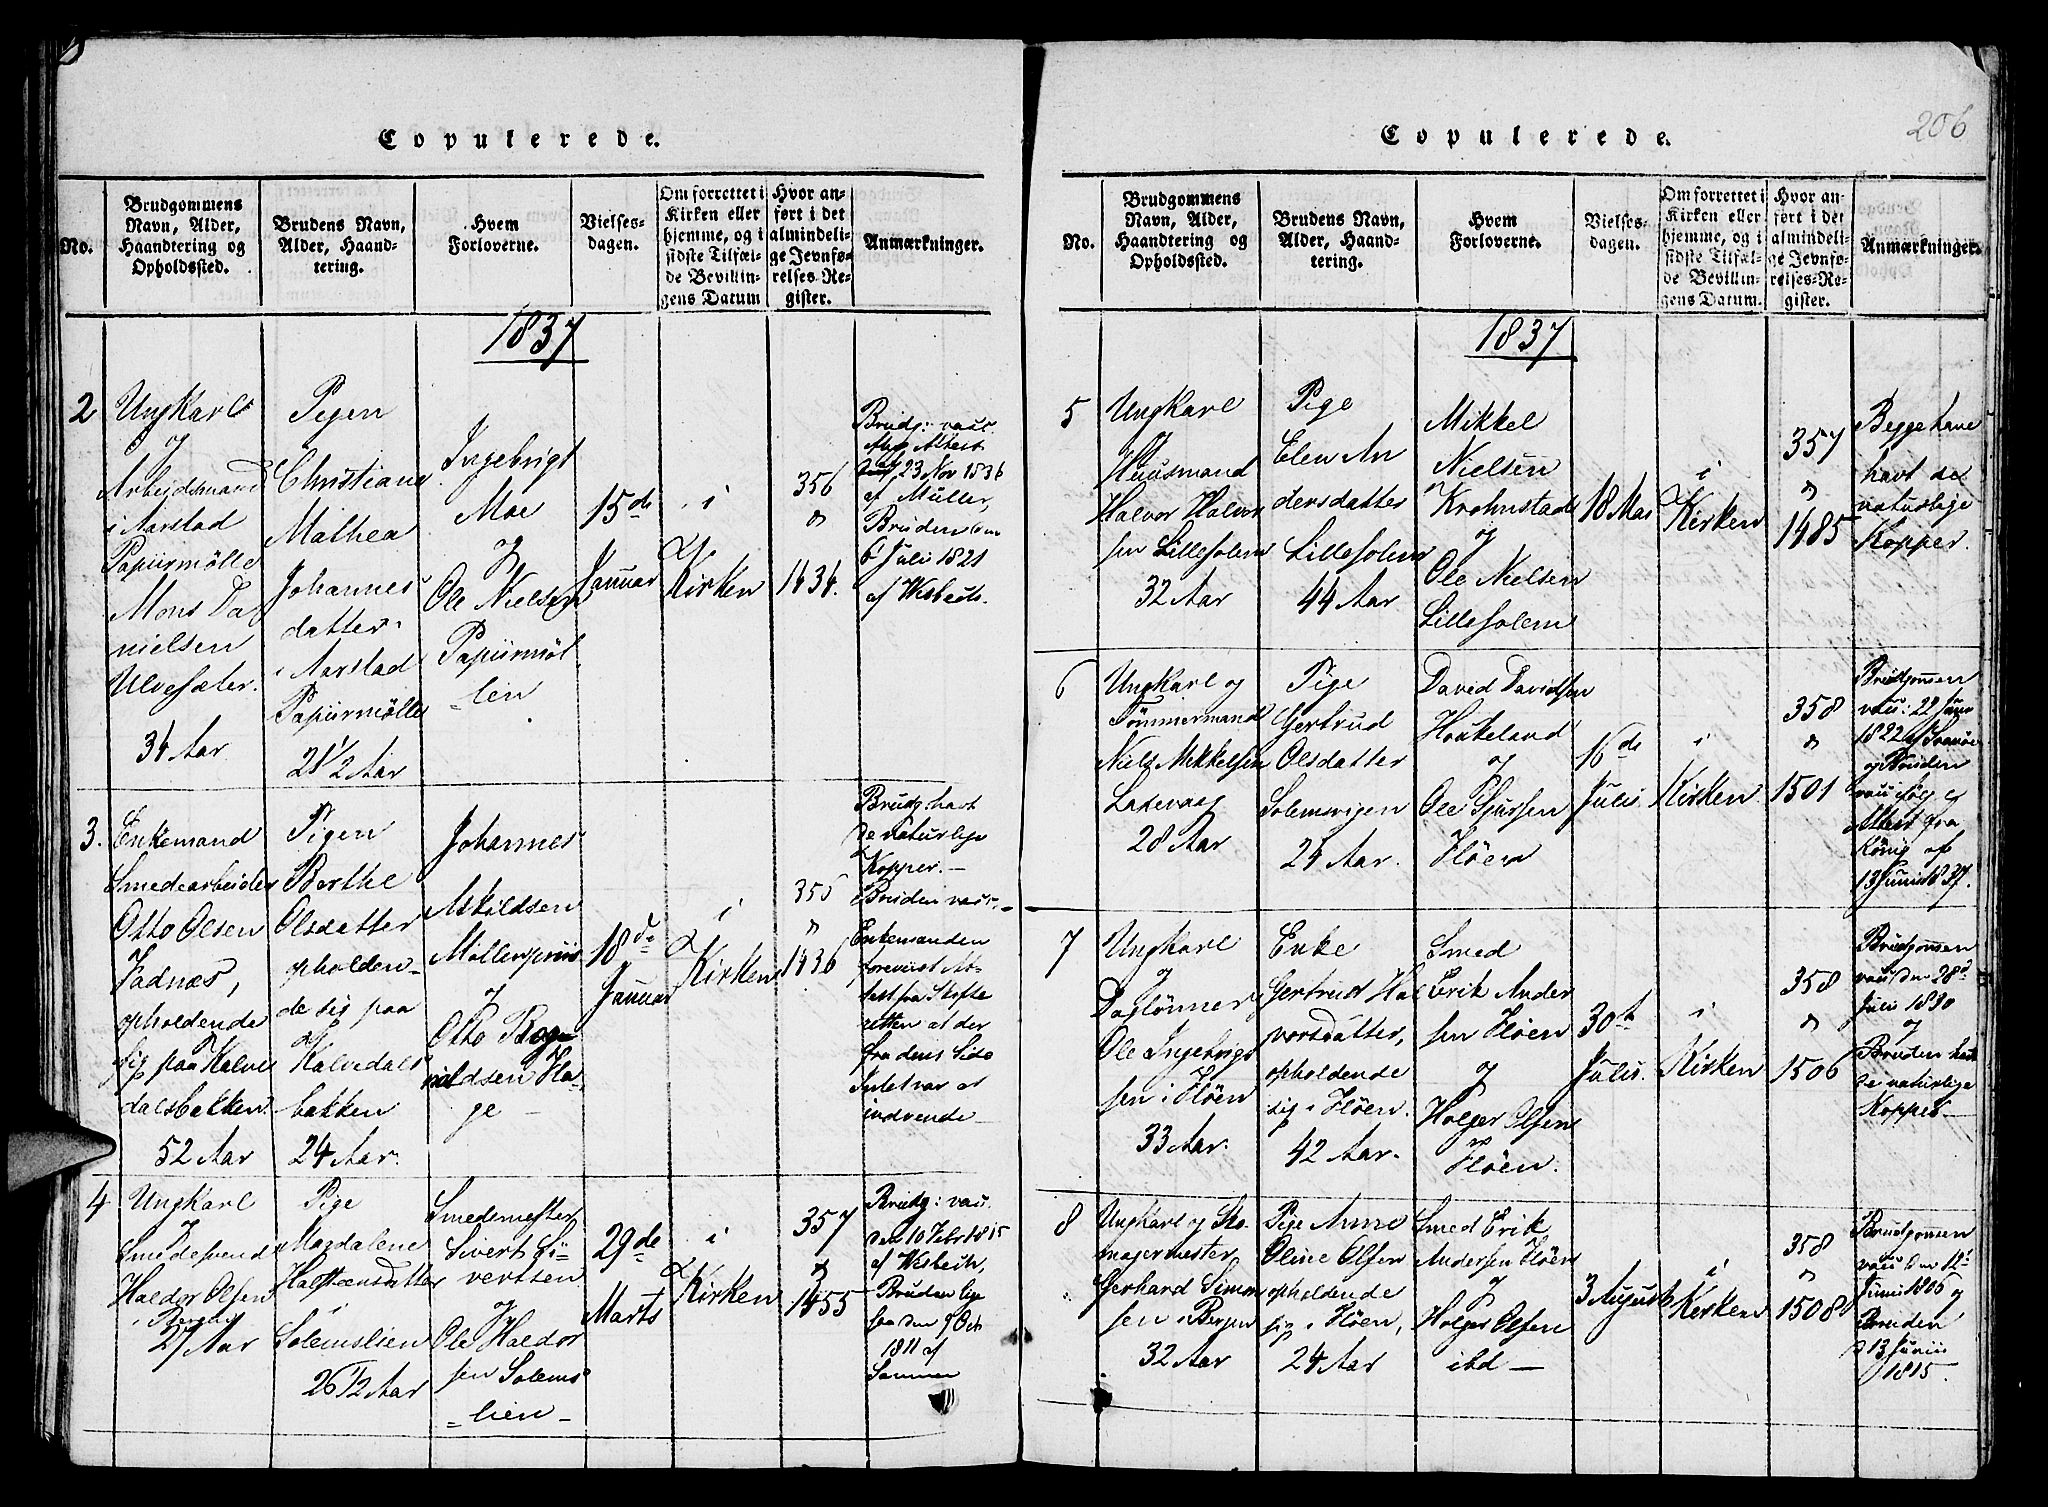 206
Copulerede.
No.
Brudgommens
Navn, Alder,
Haandtering og
Opholdssted.
Brudens Navn,
Alder, Haand-
tering.
Hvem
Forloverne.
Vielses-
dagen.
Om forrettet i
Kirken eller
hjemme, og i
sidste Tilfæl-
de Bevillin-
gens Datum
Hvor an-
ført i det
almindeli-
ge Jevnfø-
relses-Re-
gister.
Anmærkninger.
1837
2
Ungkarl
og
Arbejdsmand
i Aarstad
Papiirmølle
Mons Da
nielsen
Ulvesæter.
34 Aar
Pigen
Christiane
Mathea
Johannes
datter
i Aarstad
Papiirmølle
21 1/2 Aar
Ingebrigt
Moe
og
Ole Nielsen
Papiirmøl
-len
15de
Januar
i
Kirken
356
1434.
Brudg: vacc.
Attest
23 Nov 1836
af Müller,
Bruden den
6 Juli 1821
af Wesbech.
3.
Enkemand
Smedearbeider
Otto Olsen
Fadnæs,
opholdende
sig paa Kalve
dalsbakken.
52 Aar
Pigen
Berthe
Olsdatter
opholden-
de sig paa
Kalvedals
bakken
24 Aar.
Johannes
Askildsen
Møllenpriis
og
Otto Rogn
valdsen Ha-
ge -
18de
Januar
i
Kirken
355
1436
Brudg havt
de naturlige
Kopper. -
Bruden vacc. -
Enkemanden
foreviist At-
test fra Skifte
retten at der
fra dens Side
Intet var at
indvende -
4
Ungkarl
og
Smedesvend
Haldor Olsen
i Bergen
27 Aar
Pige
Magdalene
Halstensdatter
i
Solemslien
26 1/2 Aar
Smedemester
Sivert Si-
vertsen
og
Ole Haldor
sen Solems
-lien-
29de
Marts
i
Kirken
357
1455
Brudg: vacc.
den 10 Febr 1815
af Wesbech,
Bruden lige
saa den 9 Oct
1811 af
Sommer
Copulerede.
No.
Brudgommens
Navn, Alder,
Haandtering og
Opholdssted.
Brudens Navn,
Alder, Haand-
tering.
Hvem
Forloverne.
Vielses-
dagen.
Om forrettet i
Kirken eller
hjemme, og i
sidste Tilfæl-
de Bevillin-
gens Datum.
Hvor an-
ført i det
almindeli-
ge Jevnfø-
relses-Re-
gister.
Anmærkninger.
1837
5
Ungkarl
og
Huusmand
Halvor Halvor
sen Lillesolem
32 Aar
Pige
Elen An
dersdatter
Lillesolem
44 Aar
Mikkel
Nielsen
Krohnstad
og
Ole Nielsen
Lillesolem
18 Mai
i
Kirken
357
1485
Begge have
havt de
naturlige
Kopper.
6
Ungkarl og
Tømmermand
Niels Mikkelsen
Laxevaag
28 Aar
Pige
Gertrud
Olsdatter
Solemsvigen
24 Aar.
Daved Davidsen
Houkeland
og
Ole Sjursen
Fløen
16de
Julii
i
Kirken
358
1501
Brudgommen
vacc: 22 Juni
1822 af Svanøe
og Bruden
vacc følge
Attest fra
König af
13 Junii 1837.
7
Ungkarl
og
Daglønner
Ole Ingebrigt
sen i Fløen
33 Aar.
Enke
Gertrud Hal
vorsdatter,
opholdende
sig i Fløen.
42 Aar.
Smed
Erik Ander
sen Fløen
og
Holger Olsen
Fløen.
30te
Julii
i
Kirken
358
1506
Brudgommen
vacc den 28d
Julii 1830
og
Bruden havt
de naturlige
Kopper. -
8
Ungkarl og Sko
magermester
Gerhard Simon
sen i Bergen
32 Aar
Pige Anne
Oline Olsen
opholdende
sig i Fløen,
24 Aar
Smed Erik
Andersen Fløen
og
Holger Olsen
ibd -
3 August
i
Kirken
358
1508
Brudgommen
vacc den 12t
Junii 1806 og
Bruden
d 13 Junii
1815.